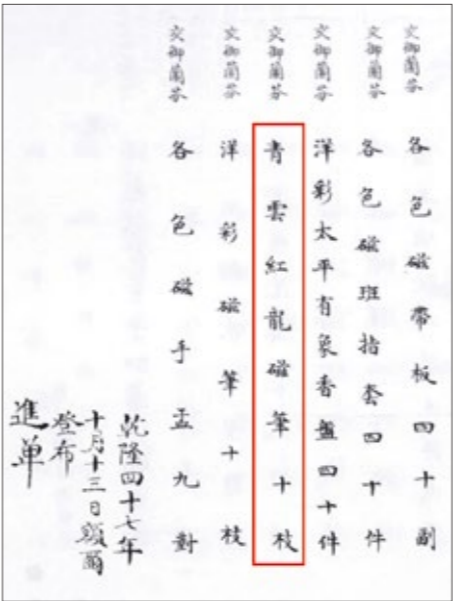 交御蘭芬 各色磁帶板四十副
交御蘭芬 各色磁班指套四十件
交御蘭芬 洋彩太平有象香盤四十件
交御蘭芬 青雲紅龍磁筆十枝
交御蘭芬 洋彩磁筆十枝
交御蘭芬 各色磁手盂九對
乾隆四十七年
十月十三日額爾
登布
進単